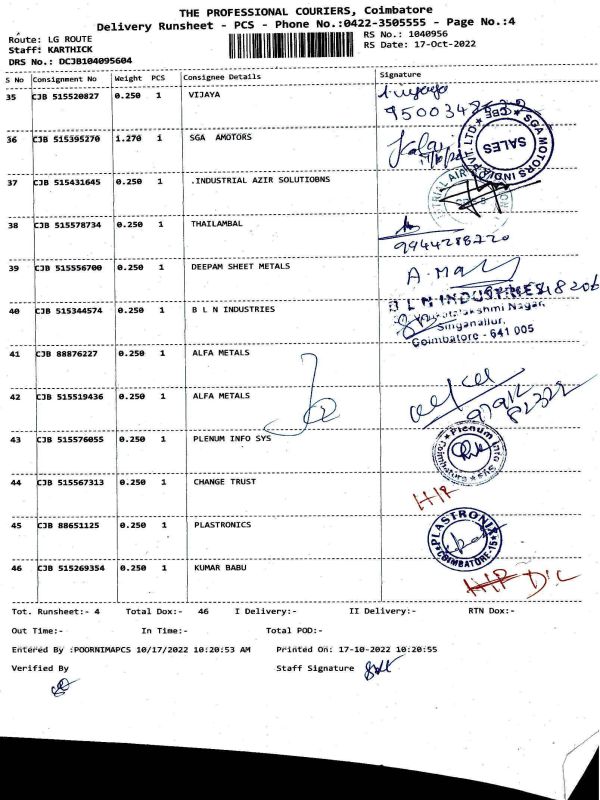 THE PROFESSIONAL COURIERS, Coimbatore
Delivery Runsheet - PCS - Phone No.:0422-3505555 - Page No.:4
Route: LG ROUTE
RS No.: 1040956
Staff: KARTHICK
RS Date: 17-Oct-2022
DRS No.: DCJB104095604
S No Consignment No Weight PCS Consignee Details Signature
35 CJB 515520827 0.250 1 VIJAYA
36 CJB 515395270 1.270 1 SGA AMOTORS
SGA MOTORS INDIA PVT. LTD. ★ CBE ★
SALES
37 CJB 515431645 0.250 1 .INDUSTRIAL AZIR SOLUTIOBNS
38 CJB 515578734 0.250 1 THAILAMBAL
9944288220
39 CJB 515556700 0.250 1 DEEPAM SHEET METALS
40 CJB 515344574 0.250 1 B L N INDUSTRIES
B L N INDUSTRIES
Nagar,
Singanallur,
Coimbatore - 641 005
41 CJB 88876227 0.250 1 ALFA METALS
42 CJB 515519436 0.250 1 ALFA METALS
43 CJB 515576055 0.250 1 PLENUM INFO SYS
Plenum Info Sys ★ Coimbatore ★
44 CJB 515567313 0.250 1 CHANGE TRUST
45 CJB 88651125 0.250 1 PLASTRONICS
PLASTRONIX
COIMBATORE-15
46 CJB 515269354 0.250 1 KUMAR BABU
D'C
Tot. Runsheet:- 4 Total Dox:- 46 I Delivery:- II Delivery:- RTN Dox:-
Out Time:- In Time:- Total POD:-
Entered By :POORNIMAPCS 10/17/2022 10:20:53 AM Printed On: 17-10-2022 10:20:55
Verified By Staff Signature